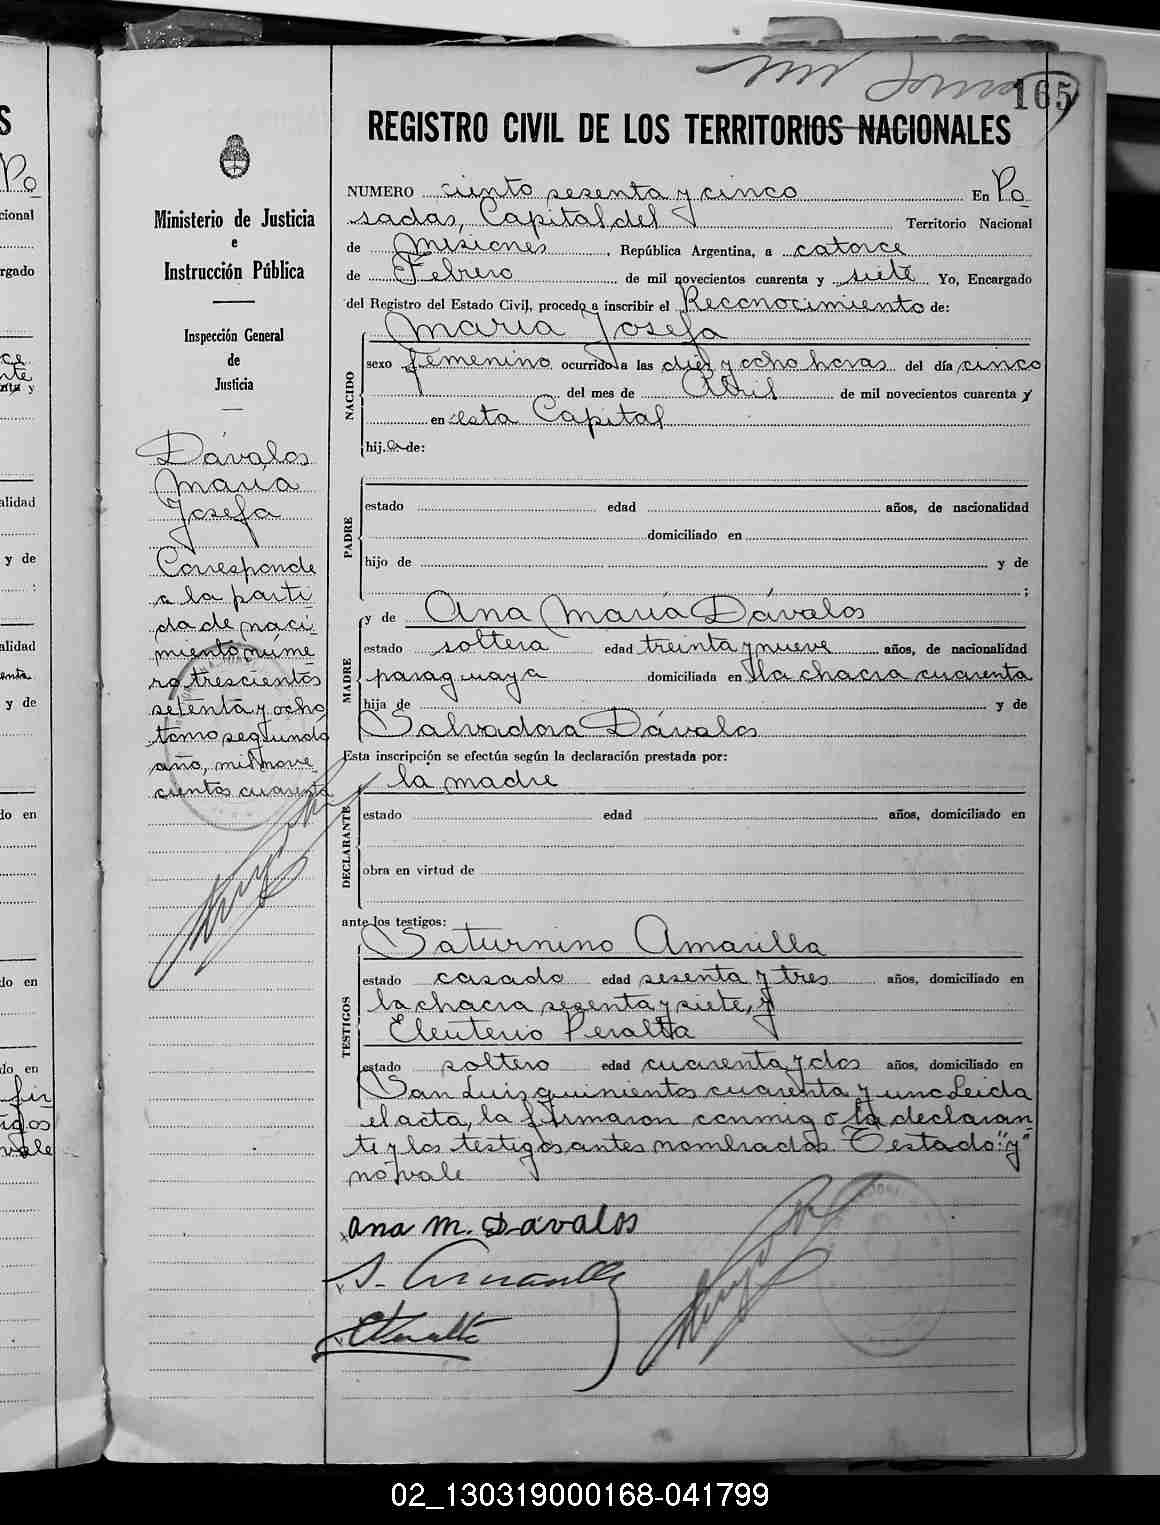 165
REGISTRO CIVIL DE LOS TERRITORIOS NACIONALES
Ministerio de Justicia
e
Instrucción Pública
Inspección General
de
Justicia
Dávalos
María
Josefa
Corresponde
a la parti-
da de naci-
miento núme-
ro trescientos
setenta y ocho
tomo segundo
año, mil nove-
cientos cuarenta
NUMERO ciento sesenta y cinco En Po
sadas, Capital del Territorio Nacional
de Misiones, República Argentina, a catorce
de Febrero de mil novecientos cuarenta y siete Yo, Encargado
del Registro del Estado Civil, procedo a inscribir el Reconocimiento de:
María Josefa
NACIDO
sexo femenino ocurrido a las diez y ocho horas del día cinco
del mes de Abril de mil novecientos cuarenta y
en esta Capital
hija de:
PADRE
estado edad años, de nacionalidad
domiciliado en
hijo de y de
;
y de Ana María Dávalos
MADRE
estado soltera edad treinta y nueve años, de nacionalidad
paraguaya domiciliada en la chacra cuarenta
hija de y de
Salvadora Dávalos
Esta inscripción se efectúa según la declaración prestada por:
la madre
DECLARANTE
estado edad años, domiciliado en
obra en virtud de
ante los testigos:
Saturnino Amarilla
TESTIGOS
estado casado edad sesenta y tres años, domiciliado en
la chacra sesenta y siete, y
Eleuterio Peralta
estado soltero edad cuarenta y dos años, domiciliado en
San Luis quinientos cuarenta y uno. Leida
el acta, la firmaron conmigo la declaran-
te y los testigos antes nombrados. Testado: "y"
no vale
Ana M. Dávalos
S. Amarilla
EPeralta
02_130319000168-041799